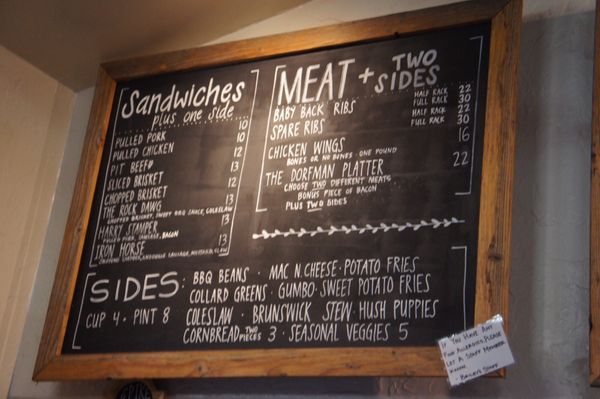 Sandwiches
plus one side
PULLED PORK 10
PULLED CHICKEN 10
PIT BEEF# 12
SLICED BRISKET 12
CHOPPED BRISKET 12
THE ROCK DAWG 13
CHOPPED BRISKET, SWEET BBQ SAUCE, COLESLAW
HARRY STAMPER 13
PULLED PORK, SAUSAGE, BACON
IRON HORSE 13
MEAT + TWO SIDES
BABY BACK RIBS HALF RACK 22
FULL RACK 30
SPARE RIBS HALF RACK 22
FULL RACK 30
CHICKEN WINGS 16
BONES OR NO BONES · ONE POUND
THE DORFMAN PLATTER 22
CHOOSE TWO DIFFERENT MEATS
BONUS PIECE OF BACON
PLUS TWO SIDES
SIDES:
CUP 4 · PINT 8
BBQ BEANS · MAC N CHEESE · POTATO FRIES
COLLARD GREENS · GUMBO · SWEET POTATO FRIES
COLESLAW · BRUNSWICK STEW · HUSH PUPPIES
CORNBREAD TWO PIECES 3 · SEASONAL VEGGIES 5
IF YOU HAVE ANY
FOOD ALLERGIES, PLEASE
LET A STAFF MEMBER
KNOW.